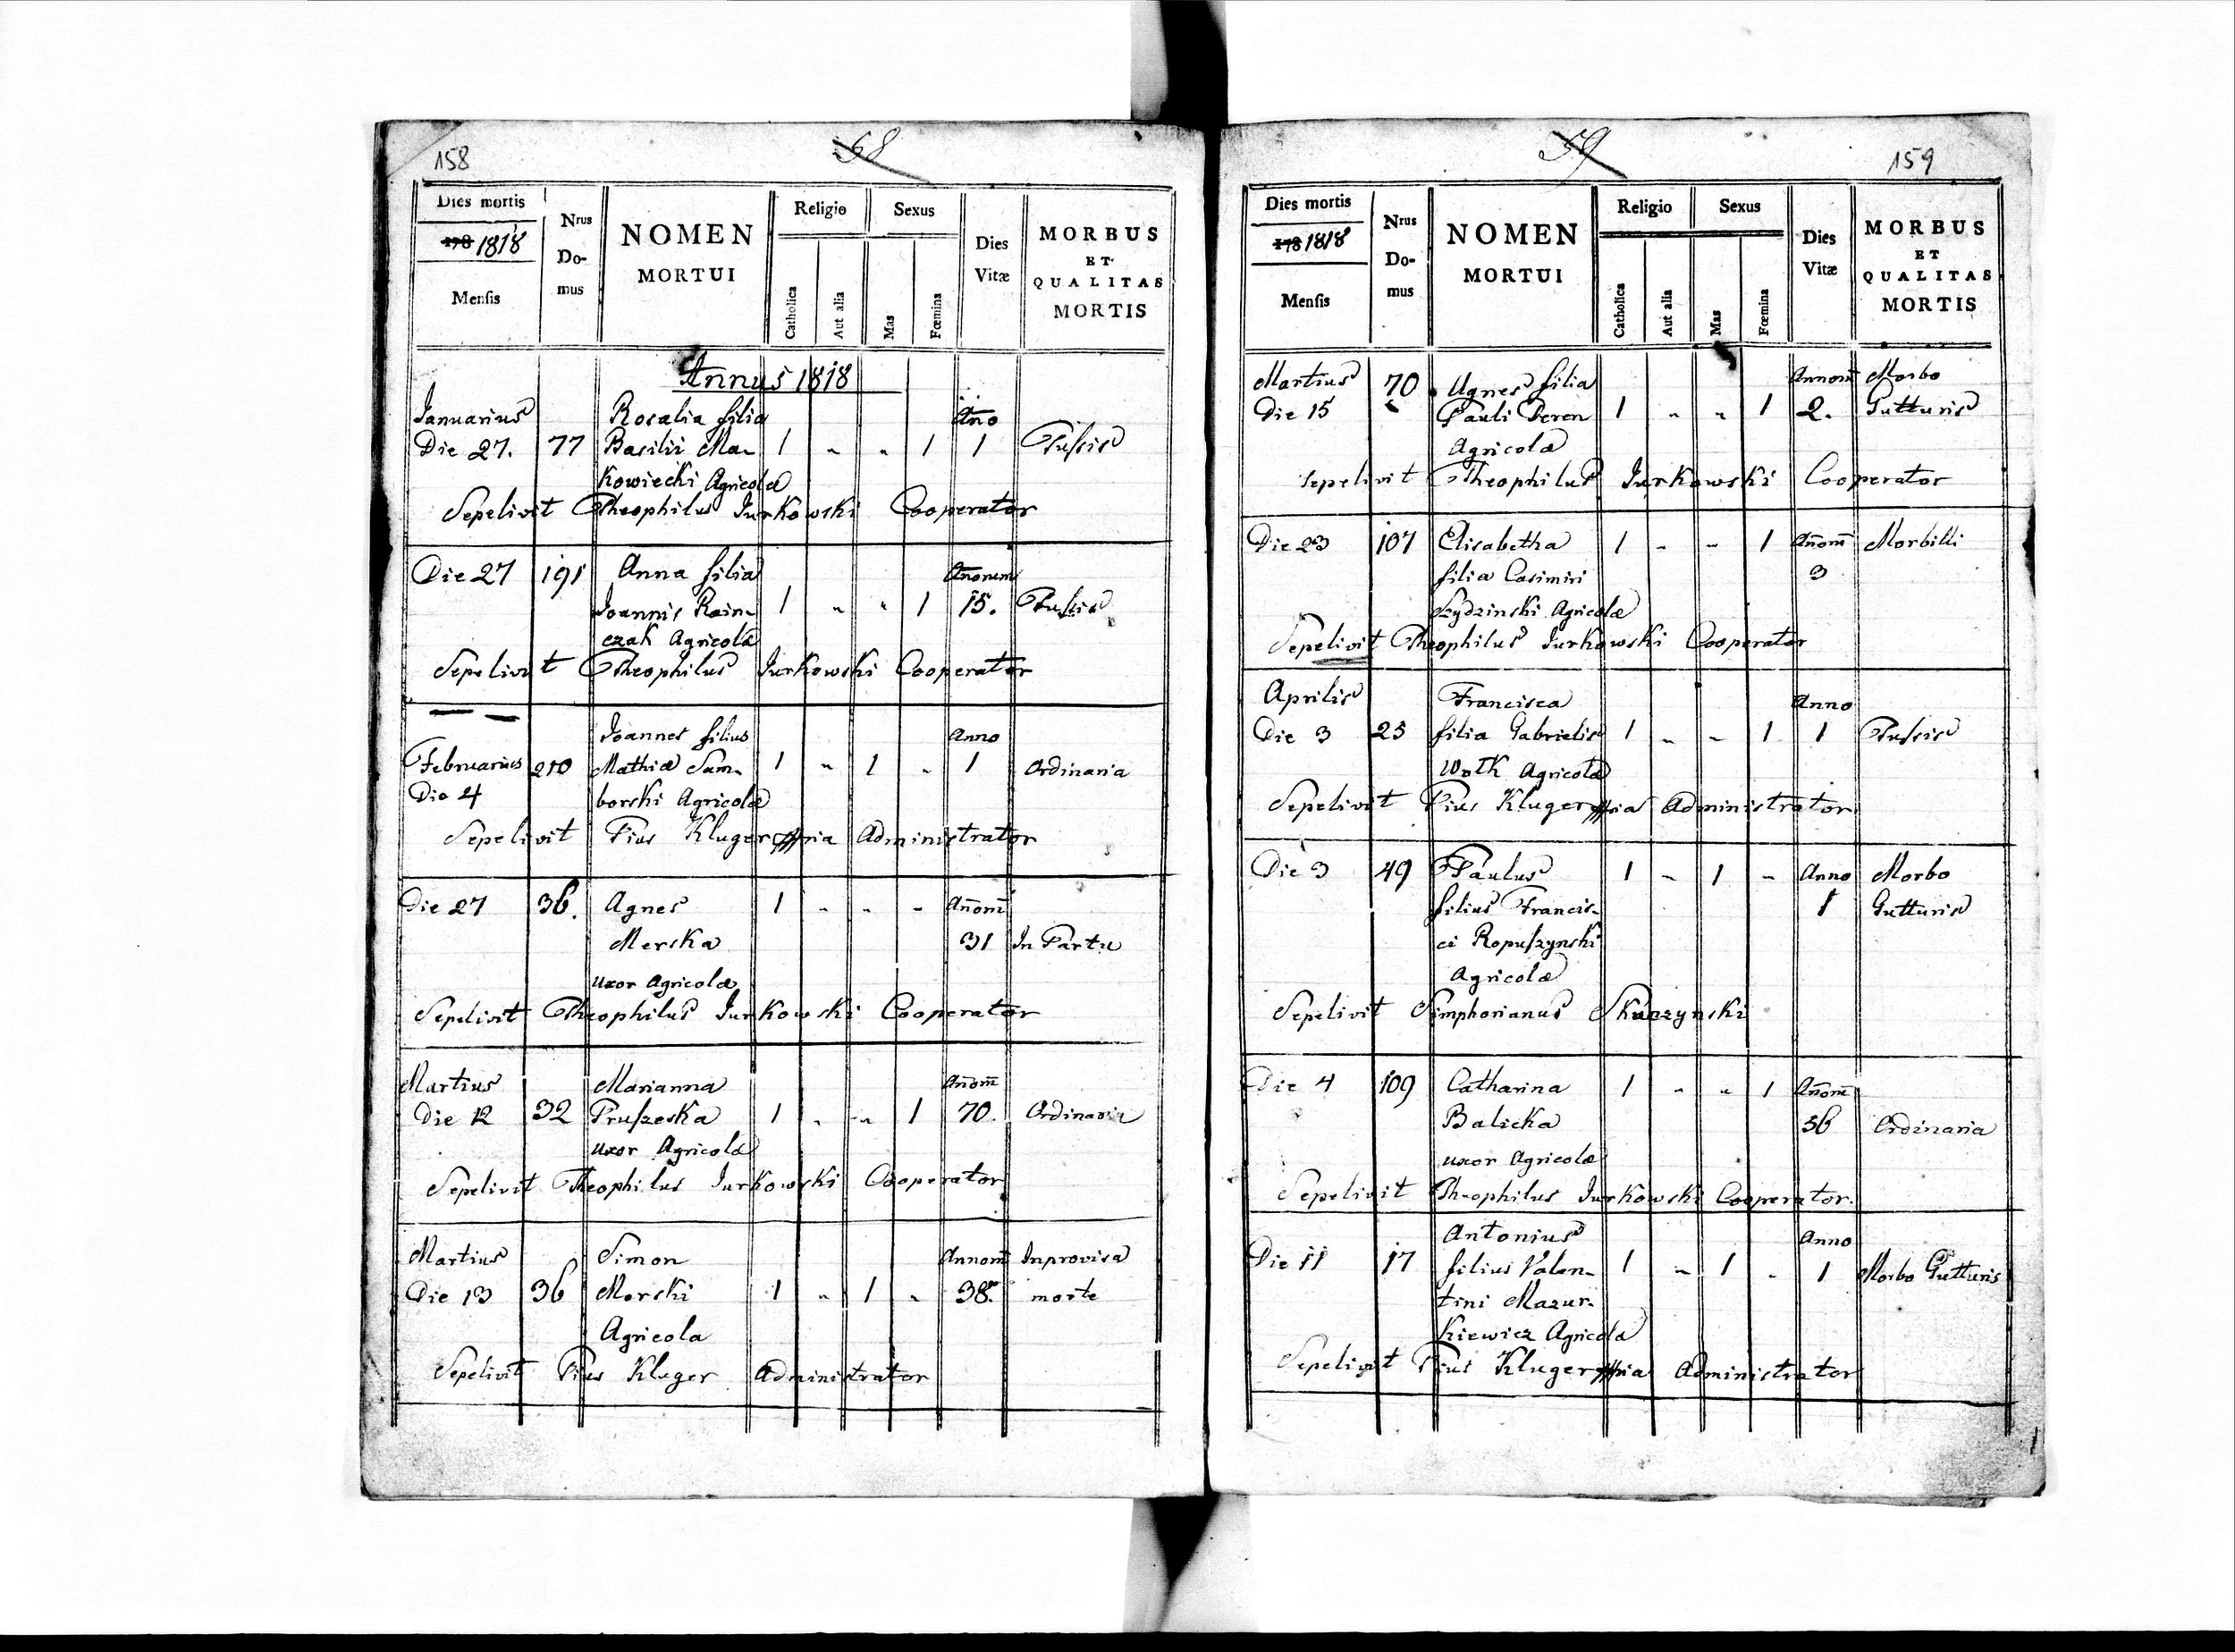 158
58
Dies mortis
178 1818
Mensis
Nrus
Do-
mus
NOMEN
MORTUI
Religio
Catholica
Aut alia
Sexus
Mas
Fœmina
Dies
Vitæ
MORBUS
ET
QUALITAS
MORTIS
Annus 1818
Januarius Rosalia filia Ano
Die 27. 77 Basilii Ma- 1 " " 1 1 Tussis
kowiecki Agricolæ
Sepelivit Theophilus Jurkowski Cooperator
Die 27 191 Anna filia Anorum
Joannis Rain- 1 " " 1 15. Tussis
czak Agricolæ
Sepelivit Theophilus Jurkowski Cooperator
Joannes filius Anno
Februarius 210 Mathiæ Sam- 1 " 1 " 1 Ordinaria
Die 4 borski Agricolæ
Sepelivit Pius Kluger mpria Administrator
Die 27 36. Agnes 1 " " " Anom
Merska 31 In Partu
uxor Agricolæ
Sepelivit Theophilus Jurkowski Cooperator
Martius Marianna Anom
Die 12 32 Pruszeska 1 " " 1 70. Ordinaria
uxor Agricolæ
Sepelivit Theophilus Jurkowski Cooperator
Martius Simon Annom Inprovisa
Die 13 36 Merski 1 " 1 " 38. morte
Agricola
Sepelivit Pius Kluger Administrator
59
159
Dies mortis
178 1818
Mensis
Nrus
Do-
mus
NOMEN
MORTUI
Religio
Catholica
Aut alia
Sexus
Mas
Fœmina
Dies
Vitæ
MORBUS
ET
QUALITAS
MORTIS
Martius 70 Agnes filia Annom Morbo
Die 15 Pauli Deren 1 " " 1 2. Gutturis
Agricolæ
Sepelivit Theophilus Jurkowski Cooperator
Die 23 107 Elisabetha 1 " " 1 Anom Morbilli
filia Casimiri 3
Szydzinski Agricolæ
Sepelivit Theophilus Jurkowski Cooperator
Aprilis Francisca Anno
Die 3 25 filia Gabrielis 1 " " 1 1 Tussis
Wotk Agricolæ
Sepelivit Pius Kluger mpria Administrator
Die 3 49 Paulus 1 " 1 " Anno Morbo
filius Francis- 1 Gutturis
ci Ropuszynski
Agricolæ
Sepelivit Simphorianus Skurzynski
Die 4 109 Catharina 1 " " 1 Anom
Balicka 36 Ordinaria
uxor Agricolæ
Sepelivit Theophilus Jurkowski Cooperator.
Antonius Anno
Die 11 17 filius Valen- 1 " 1 " 1 Morbo Gutturis
tini Mazur-
kiewicz Agricola
Sepelivit Pius Kluger mpria Administrator